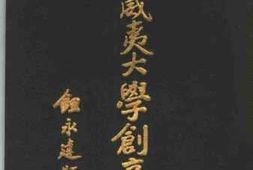 威夷大學創
鈕永建